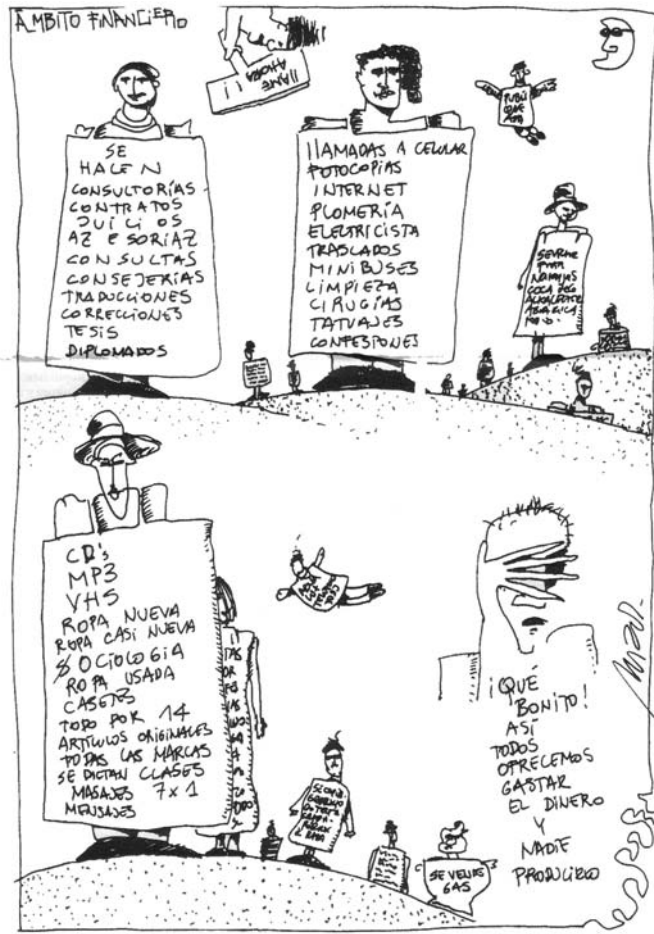 ÁMBITO FINANCIERO
¡¡LLAME
AHORA
!!
SE
HACEN
CONSULTORÍAS
CONTRATOS
JUICIOS
AZESORIAZ
CONSULTAS
CONSEJERÍAS
TRADUCCIONES
CORRECCIONES
TESIS
DIPLOMADOS
LLAMADAS A CELULAR
FOTOCOPIAS
INTERNET
PLOMERÍA
ELECTRICISTA
TRASLADOS
MINIBUSES
LIMPIEZA
CIRUGÍAS
TATUAJES
CONFESIONES
PUBLÍ
QUE
NARANJAS
CD's
MP3
VHS
ROPA NUEVA
ROPA CASI NUEVA
$OCIOLOGIA
ROPA USADA
CASETES
TODO POR 14
ARTÍCULOS ORIGINALES
TODAS LAS MARCAS
SE DICTAN CLASES
MASAJES 7x1
MENSAJES
SE VENDE
GAS
¡QUÉ
BONITO!
ASÍ
TODOS
OFRECEMOS
GASTAR
EL DINERO
Y
NADIE
PRODUCIRLO